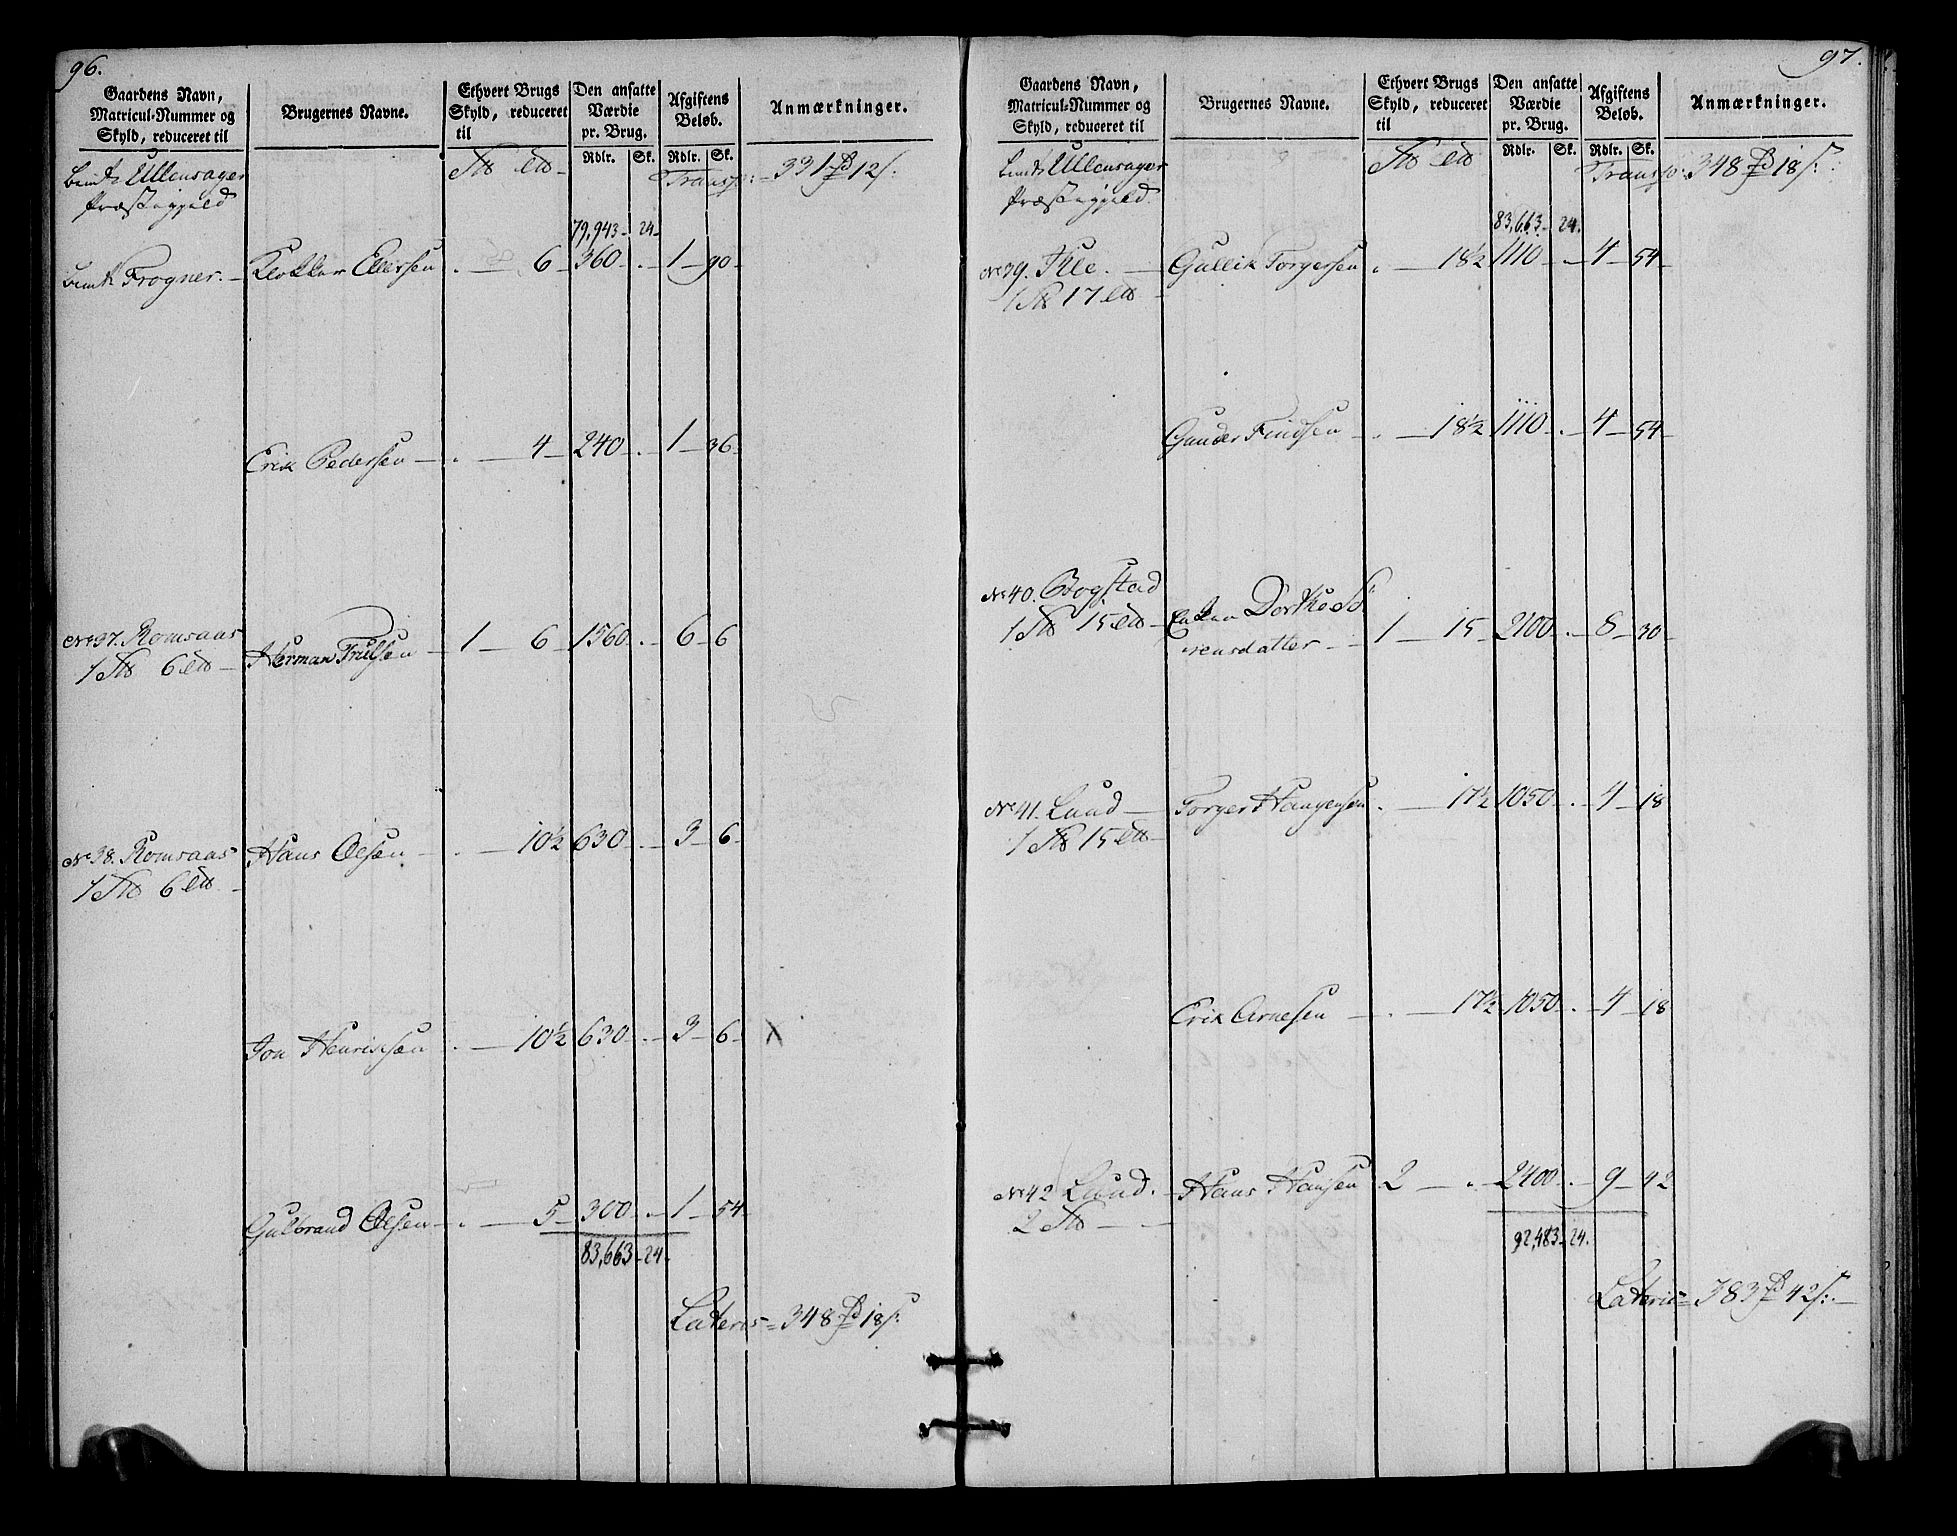 96.
Gaardens Navn, Matricul-Nummer og Skyld, reduceret til
Brugernes Navne.
Ethvert Brugs Skyld, reduceret til
Den ansatte Værdie pr. Brug.
Afgiftens Beløb.
Anmærkninger.
Rdlr. Sk. Rdlr. Sk.
Ullensager Transp: 331 12
Præstegjeld
79,943 24
Frogner. Klokker Ellersen . 6 360 . 1 90
Erik Pedersen . 4 240 . 1 36
No 37. Romsaas Herman Trulsen 1 6 1560 . 6 6
1 6
No 38. Romsaas Hans Olsen . 10½ 630 . 3 6
1 6
Jon Henriksen . 10½ 630 . 3 6 X
Gulbrand Olsen . 5 300 . 1 54
83,663 24
Lateris 348 18
97.
Gaardens Navn, Matricul-Nummer og Skyld, reduceret til
Brugernes Navne.
Ethvert Brugs Skyld, reduceret til
Den ansatte Værdie pr. Brug.
Afgiftens Beløb.
Anmærkninger.
Rdlr. Sk. Rdlr. Sk.
Ullensager Transp: 348 18
Præstegjeld.
83,663 24.
No 39. Gullik Torgersen . 18½ 1110 . 4 54
1 17
Gunder Findsen . 18½ 1110 . 4 54
No 40. Bogstad Enken Dorthe
1 15 1 15 2100 . 8 30
No 41. Lund Torger . 17½ 1050 . 4 18
1 15
Erik Arnesen . 17½ 1050 . 4 18
No 42 Lund. Hans Hansen 2 . 2400 . 9 42
2
92,483 24.
Lateris 383 42